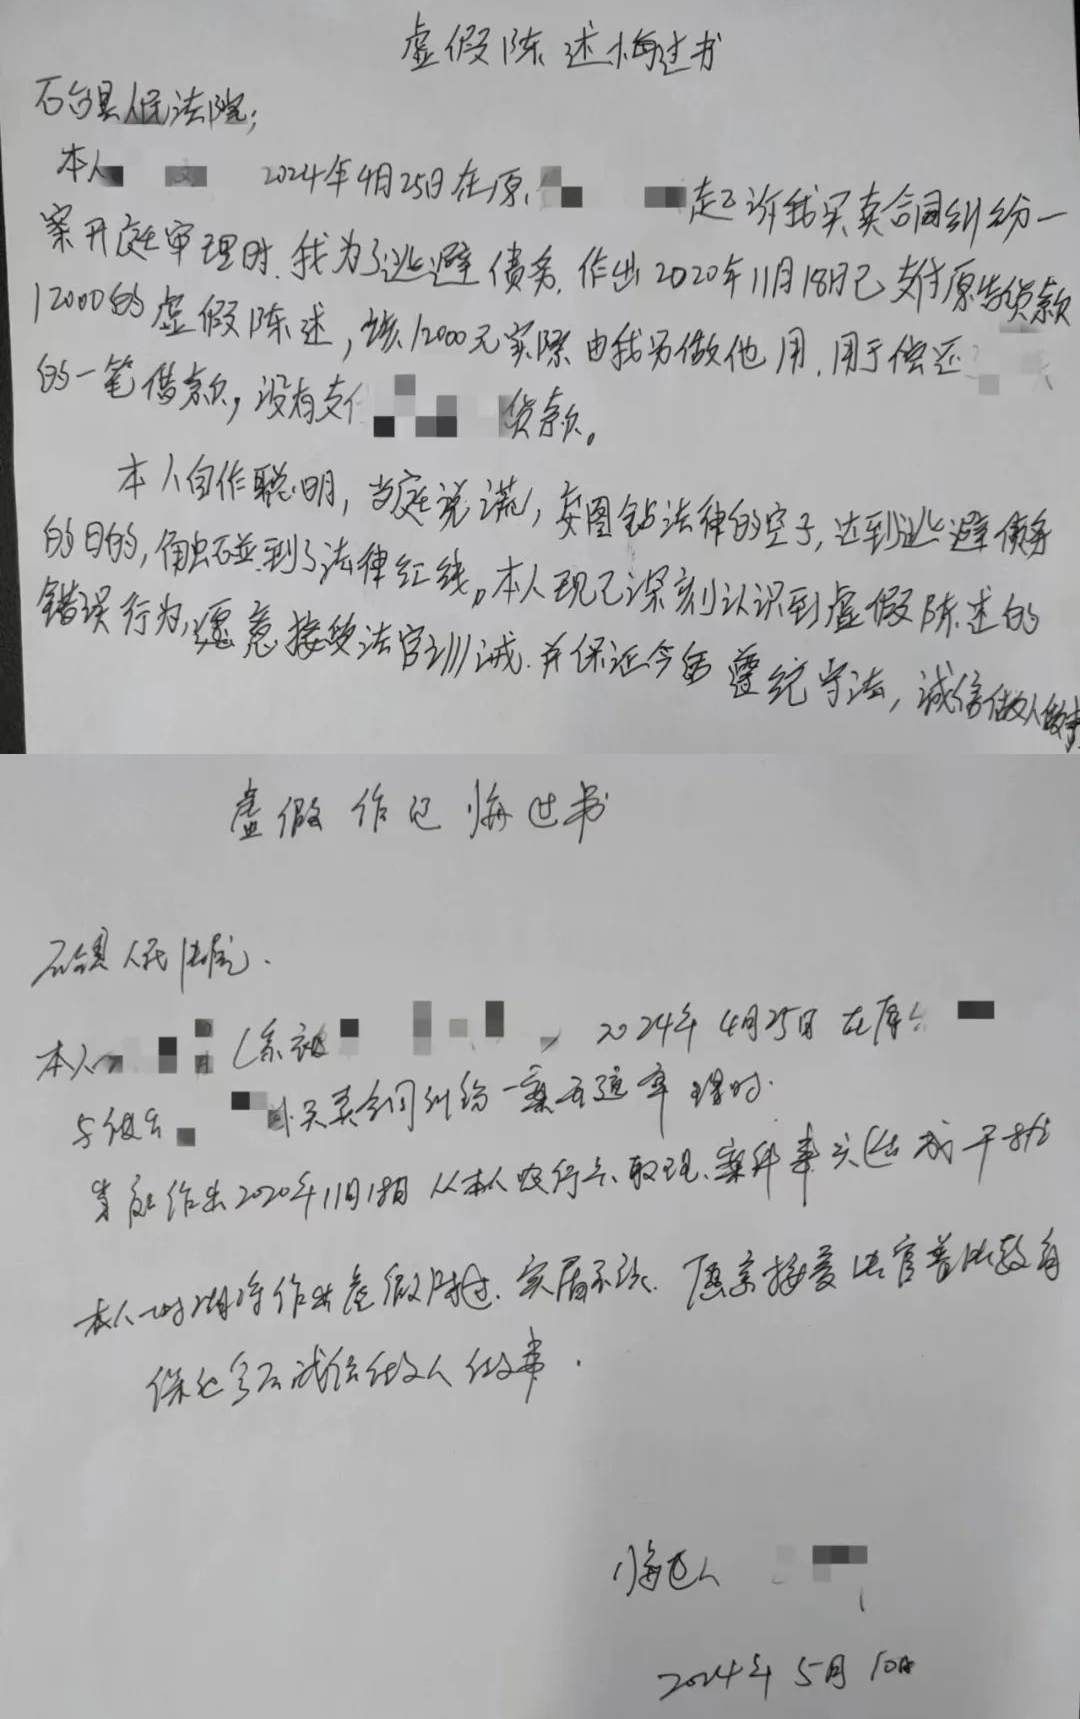 虚假陈述悔过书
石台县人民法院；
本人 2024年4月25日在原 起诉我买卖合同纠纷一
案开庭审理时.我为了逃避债务.作出2020年11月18日已支付原告货款
12000的虚假陈述，该12000元实际由我另做他用.用于偿还
的一笔借款，没有支付 货款。
本人自作聪明，当庭说谎，妄图钻法律的空子，达到逃避债务
的目的，触碰到了法律红线。本人现已深刻认识到虚假陈述的
错误行为，愿意接受法官训诫.并保证今后遵纪守法，诚信做人做事
虚假作证悔过书
石台县人民法院.
本人 (系被 ，2024年4月25日在原
与被告 买卖合同纠纷一案开庭审理时.
作出2020年11月18日从本人农行卡取现.案件事实造成干扰
本人一时糊涂作出虚假陈述.实属不该.愿意接受法官普法教育
保证今后诚信做人做事.
悔过人
2024年5月10日